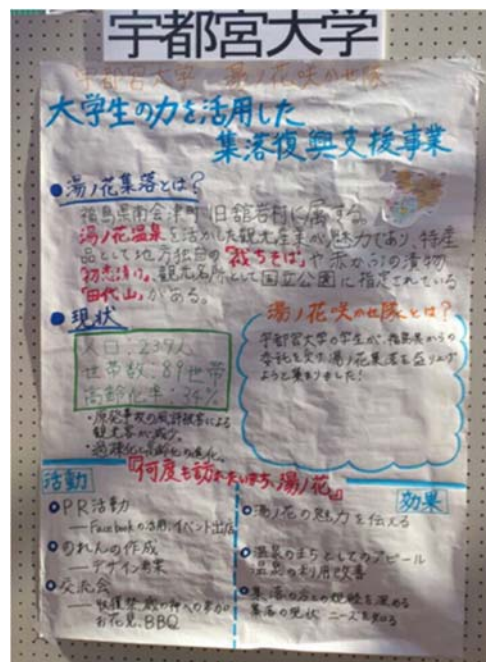 宇都宮大学
宇都宮大学 湯ノ花咲かせ隊
大学生の力を活用した
集落復興支援事業
●湯ノ花集落とは?
福島県南会津町旧舘岩村に属する。
湯ノ花温泉を活かした観光産業が魅力であり、特産
品として地方独自の「裁ちそば」や赤かぶの漬物
「初恋漬け」、観光名所として国立公園に指定されている
「田代山」がある。
●現状
人口:239人
世帯数:89世帯
高齢化率:34%
・原発事故の風評被害による
観光客が減少。
・過疎化と高齢化の進化。
湯ノ花咲かせ隊とは?
宇都宮大学の学生が、福島県からの
委託を受け湯ノ花集落を盛り上げ
ようと集まりました!
『何度も訪れたいまち、湯ノ花』
活動
PR活動
Facebookの活用、イベント出店
のれんの作成
デザイン考案
交流会
収穫祭、歳の神への参加
お花見、BBQ
効果
湯ノ花の魅力を伝える
温泉のまちとしてのアピール
温泉の利用改善
集落の方との親睦を深める
集落の現状 ニーズを知る